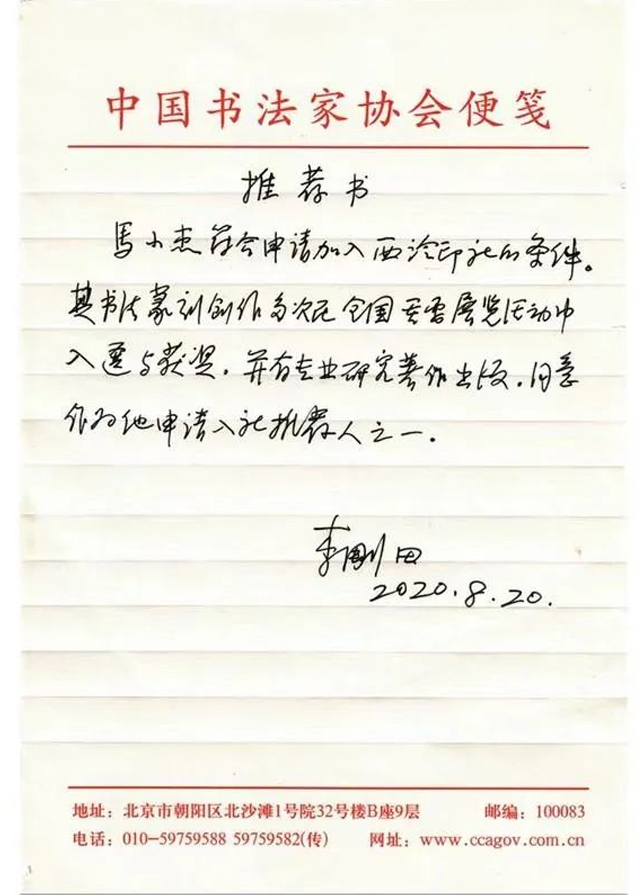 中国书法家协会便笺
推荐书
馬小杰符合申请加入西泠印社的条件。
其书法篆刻创作多次在全国重要展览活动中
入选与获奖，并有专业研究著作出版，同意
作为他申请入社推荐人之一。
李刚田
2020.8.20.
地址：北京市朝阳区北沙滩1号院32号楼B座9层 邮编：100083
电话：010-59759588 59759582(传) 网址：www.ccagov.com.cn